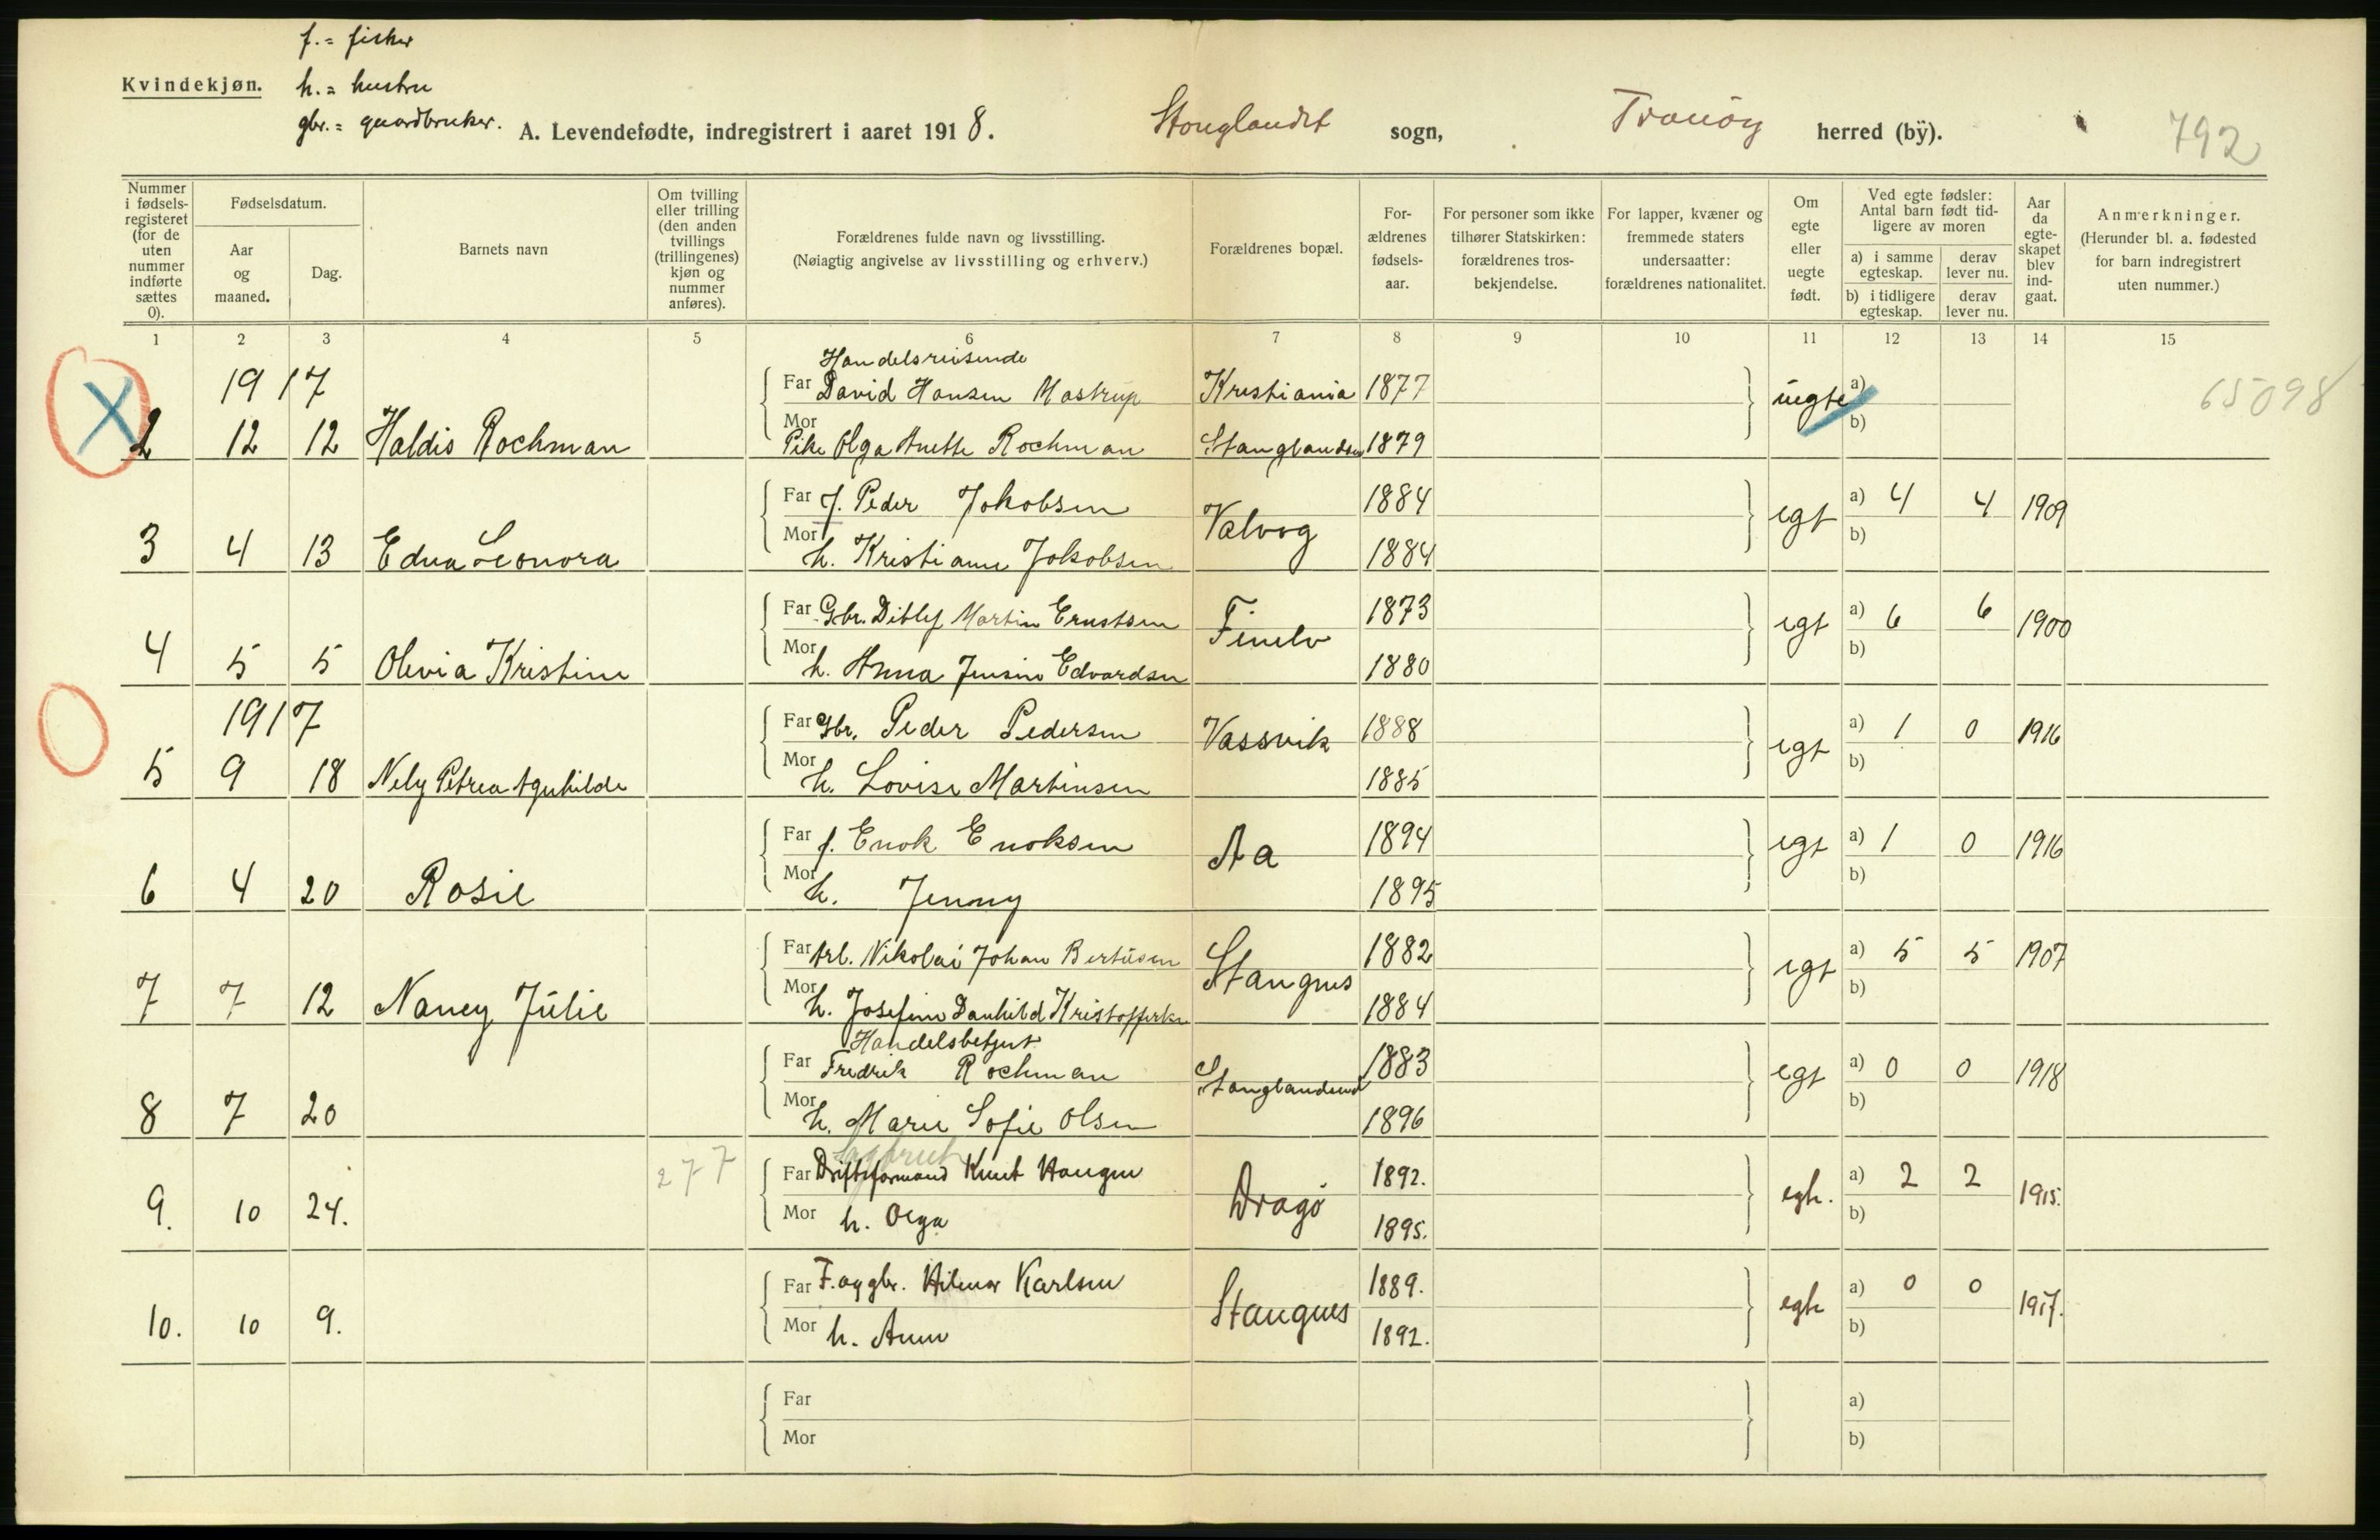 f. = fisker
Kvindekjøn. h. = hustru
gbr. = gaardbruker.
A. Levendefødte, indregistrert i aaret 1918. Stonglandet sogn, Tranöy herred (bÿ). 792
Nummer i fødsels-registeret (for de uten nummer indførte sættes 0).
Fødselsdatum.
Aar og maaned.
Dag.
Barnets navn
Om tvilling eller trilling (den anden tvillings (trillingenes) kjøn og nummer anføres).
Forældrenes fulde navn og livsstilling. (Nøiagtig angivelse av livsstilling og erhverv.)
Forældrenes bopæl.
For-ældrenes fødsels-aar.
For personer som ikke tilhører Statskirken: forældrenes tros-bekjendelse.
For lapper, kvæner og fremmede staters undersaatter: forældrenes nationalitet.
Om egte eller uegte født.
Ved egte fødsler: Antal barn født tid-ligere av moren
a) i samme egteskap.
derav lever nu.
b) i tidligere egteskap.
derav lever nu.
Aar da egte-skapet blev ind-gaat.
Anmerkninger. (Herunder bl. a. fødested for barn indregistrert uten nummer.)
1 2 3 4 5 6 7 8 9 10 11 12 13 14 15
Handelsreisende
1917 Far David Hansen Mastrup Kristiania 1877 uegte a) 65098
2 12 12 Haldis Rochman Mor Pike Olga Anette Rochman Stanglandse 1879 b)
Far f. Peder Jakobsen Valvog 1884 egt a) 4 4 1909
3 4 13 Edna Leonora Mor h. Kristiane Jakobsen 1884 b)
Far Gbr. Ditlef Martin Ernstsen Finelv 1873 egt a) 6 6 1900
4 5 5 Olevia Kristine Mor h. Anna Jensine Edvardsen 1880 b)
1917 Far gbr. Peder Pedersen Vassvik 1888 egt a) 1 0 1916
5 9 18 Nely Petrea Aguhilde Mor h. Lovise Martinsen 1885 b)
Far f. Enok Enoksen Aa 1894 egt a) 1 0 1916
6 4 20 Rosie Mor h. Jenny 1895 b)
Far Arb. Nikolai Johan Bertüsen Stangnes 1882 egt a) 5 5 1907
7 7 12 Nancy Júlie Mor h. Josefine Danhild Kristofferse 1884 b)
Handelsbetjent
Far Fredrik Rochman Stonglandseid 1883 egt a) 0 0 1918
8 7 20 Mor h. Marie Sofie Olsen 1896 b)
277 Far Driftsformand Knut Haugen Dragö 1892. egte. a) 2 2 1915.
9. 10 24. Mor h. Olga 1895. b)
Far F. og gbr. Hilmar Karlsen Stangnes 1889. egte a) 0 0 1917.
10. 10 9. Mor h. Anne 1892. b)
Far a)
Mor b)